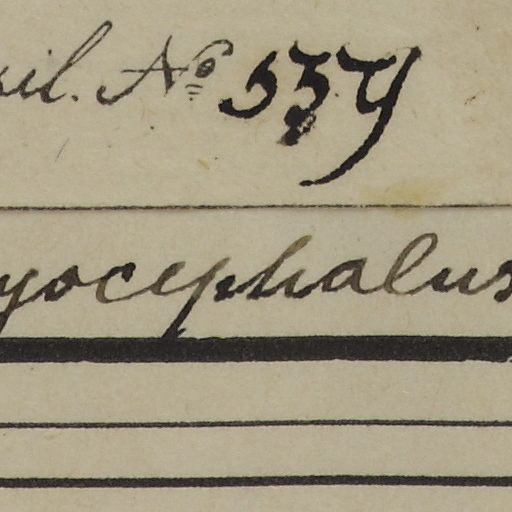 il. No 539
yocephalus